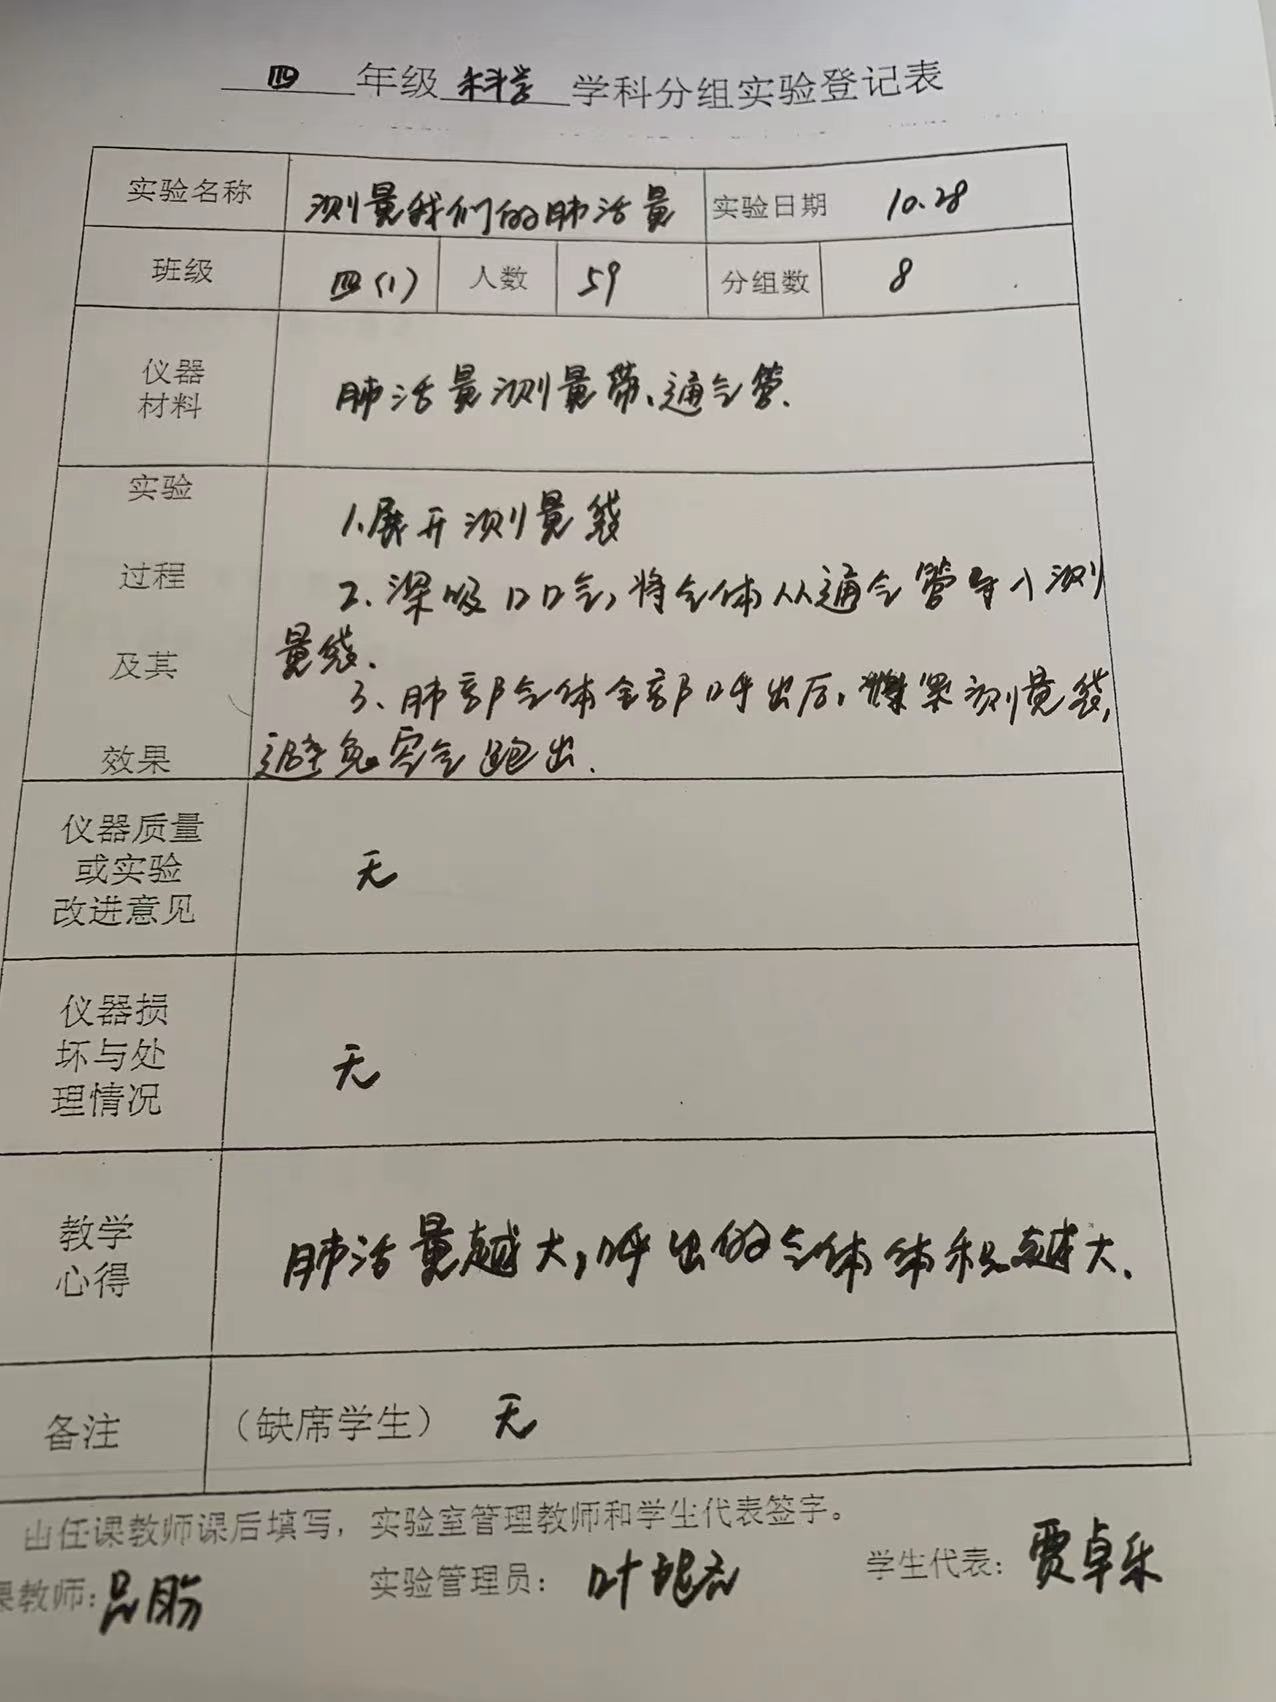 四 年级 科学 学科分组实验登记表
实验名称 测量我们的肺活量 实验日期 10.28
班级 四(1) 人数 59 分组数 8
仪器
材料
肺活量测量带、通气管.
实验
过程
及其
效果
1.展开测量袋
2.深吸口气,将气体从通气管导入测
量袋.
3.肺部气体全部呼出后,紧测量袋,
避免空气跑出.
仪器质量
或实验
改进意见
无
仪器损
坏与处
理情况
无
教学
心得
肺活量越大,呼出的气体体积越大.
备注 (缺席学生) 无
由任课教师课后填写,实验室管理教师和学生代表签字。
课教师: 实验管理员: 叶 学生代表: 贾卓乐